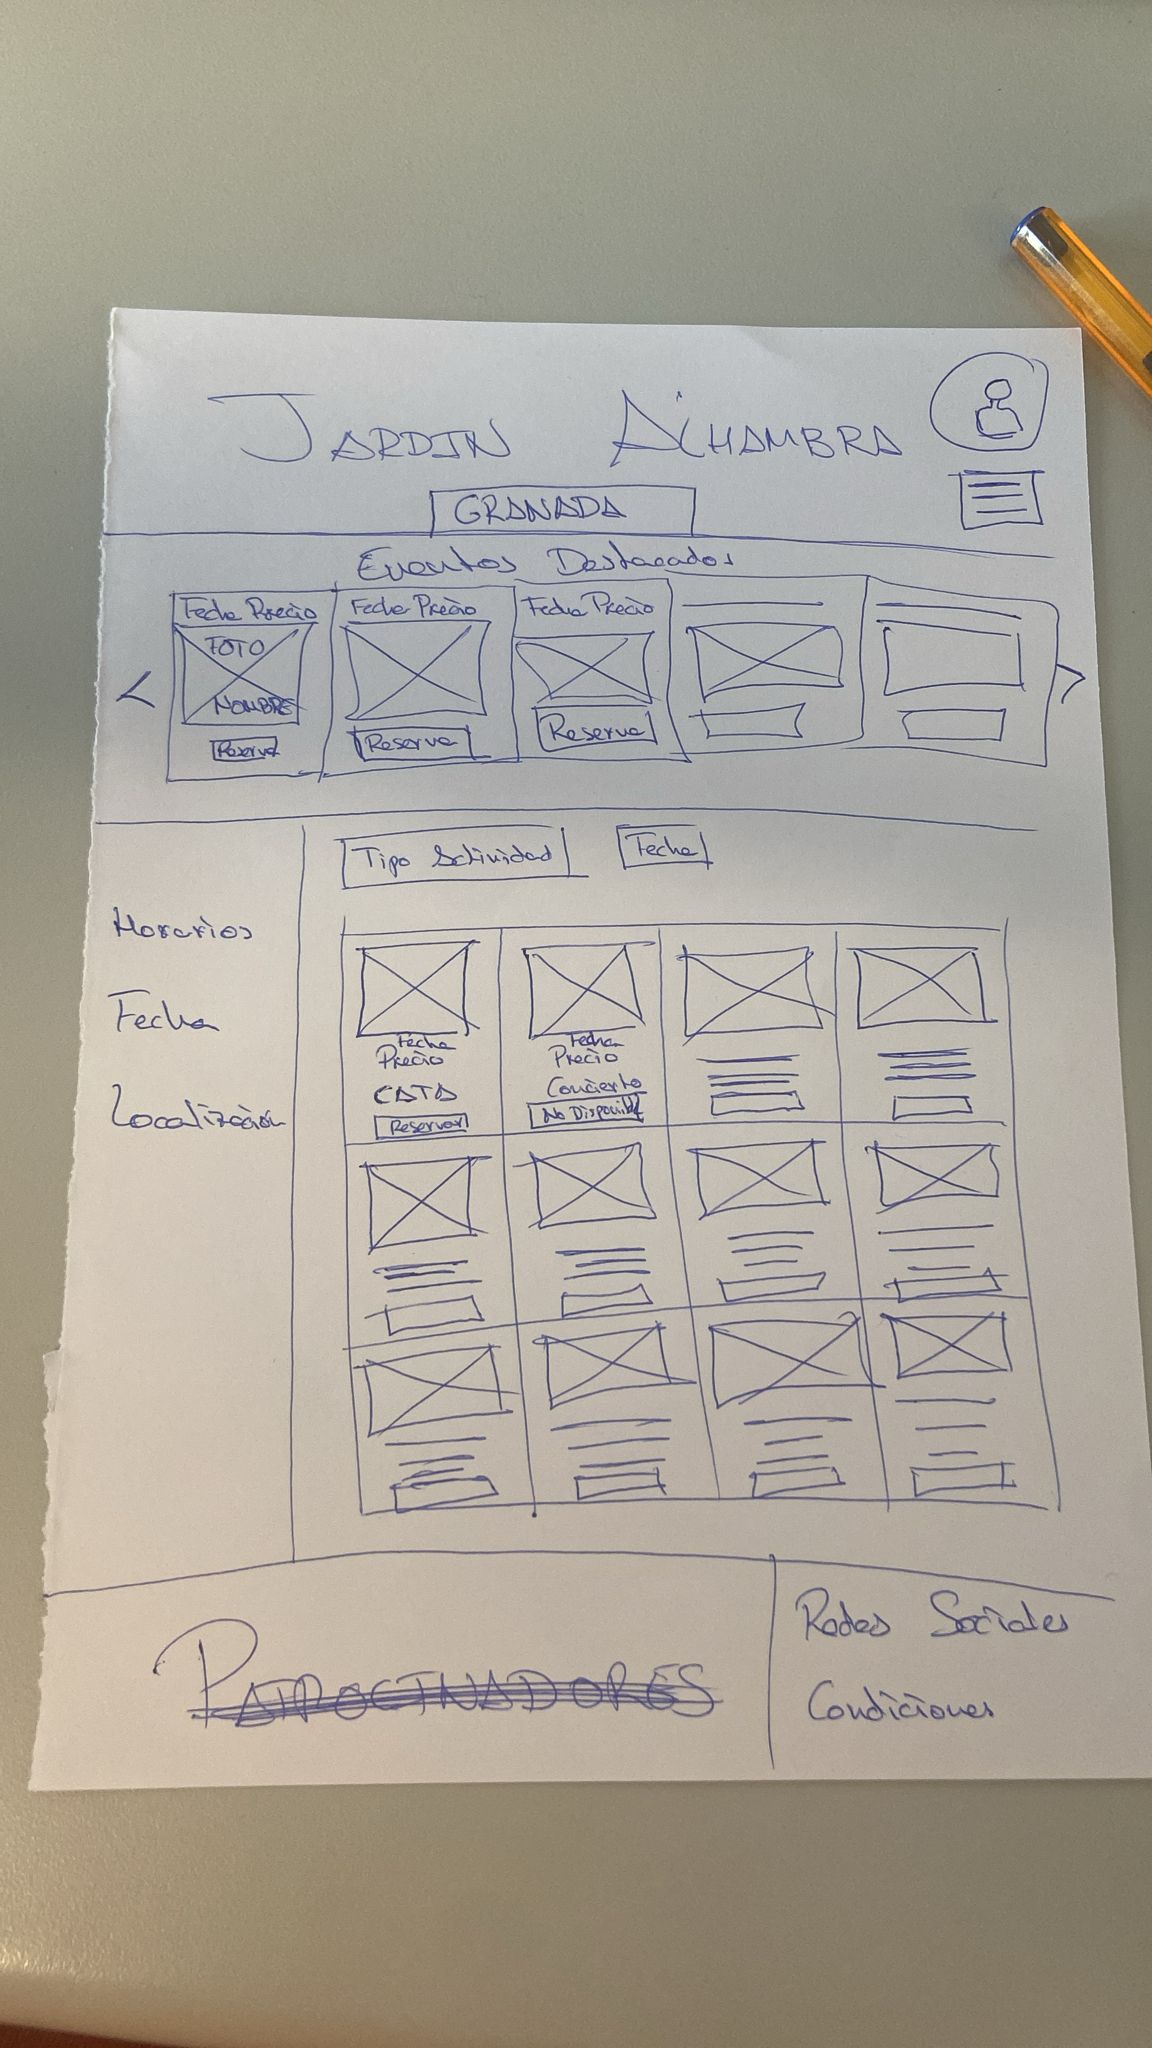 JARDIN ALHAMBRA
GRANADA
Eventos Destacados
Fecha Precio
FOTO
NOMBRE
Reserva
Fecha Precio
Reserva
Fecha Precio
Reserva
Tipo Actividad
Fecha
Horarios
Fecha
Localización
Fecha
Precio
CATA
Reservar
Fecha
Precio
Concierto
No Disponible
PATROCINADORES
Redes Sociales
Condiciones